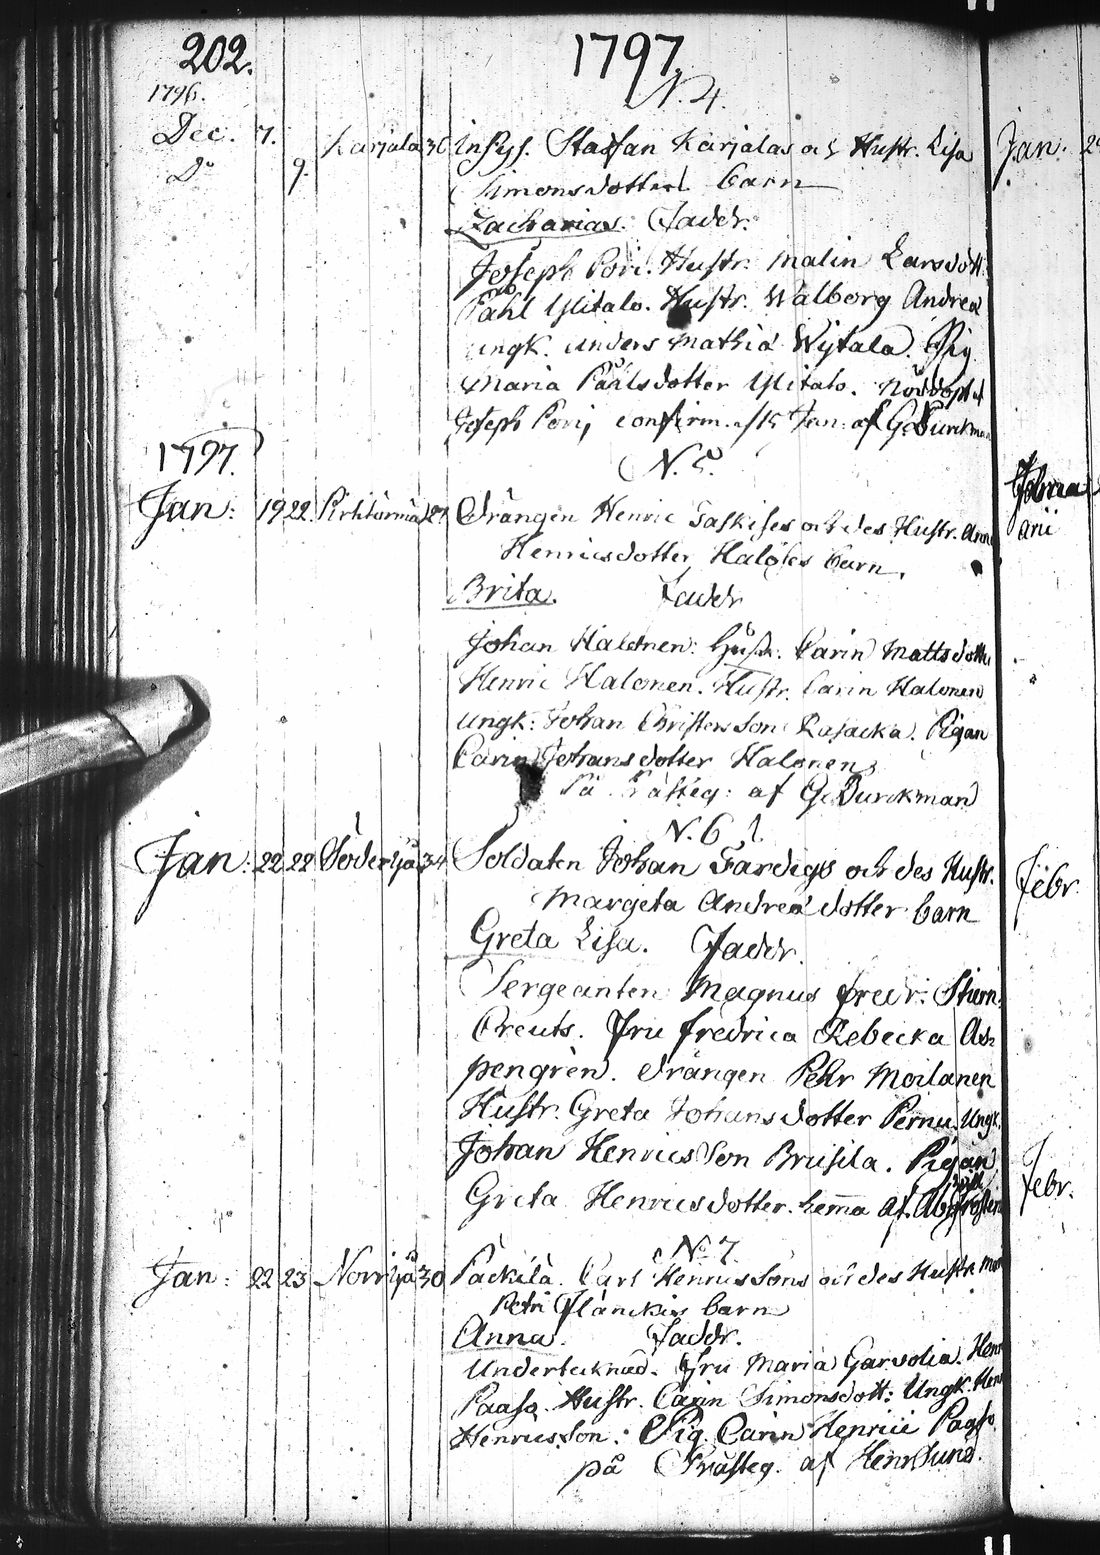 202. 1797.
1796. N. 4.
Dec. 7. Karjala 36 Inhys. Staffan Karjalas och Hustr. Lisa
Do 9. Simonsdotters barn
Zacharias. Faddr.
Joseph Pori. Hustr. Malin Larsdott.
Påhl Ylitalo. Hustr. Walborg Andreæ
ungk. Anders Mathiæ Wytala. Pig.
Maria Påhlsdotter Ylitalo. Nöddöpt af
Joseph Pori, confirm. 15 Jan: af G. Durckman
1797. N. 5.
Jan: 19 22. 27 Drängen Henric och des Hustr. Anna
Henricsdotter Halois barn.
Brita. Faddr
Johan Halonen. Hustr. Carin Mattsdotter
Henric Halonen. Hustr. Carin Halonen
ungk: Johan Christersson Rajacka. Pigan
Carin Johansdotter Halonen
På Prästeg: af G. Durckman
N. 6
Jan: 22 22 Söderbyå 34 Soldaten Johan Färdigs och des Hustr.
Margeta Andreædotter barn
Greta Lisa. Faddr.
Sergeanten Magnus Fredr: Stiern
Creuts. Fru Fredrica Rebecka As-
pengrén. Drängen Pehr Moilanen
Hustr. Greta Johansdotter Pernu. Ungk.
Johan Henricsson Brusila. Pigan
Greta Henricsdotter. hemma af
No 7
Jan: 22 23 Norrbyå 30 Päckilä. Carl Henricssons och des Hustr.
Petri barn
Anna. Faddr.
Undertecknad. Fru Maria Garvolia. Henr
Paaso. Hustr. Carin Simonsdott: Ungk. Henr
Henricsson. Pig. Carin Henrici Paaso.
på Prästeg. af Henr Sund.
Jan. 2
Februa
arii
Febr.
Febr.